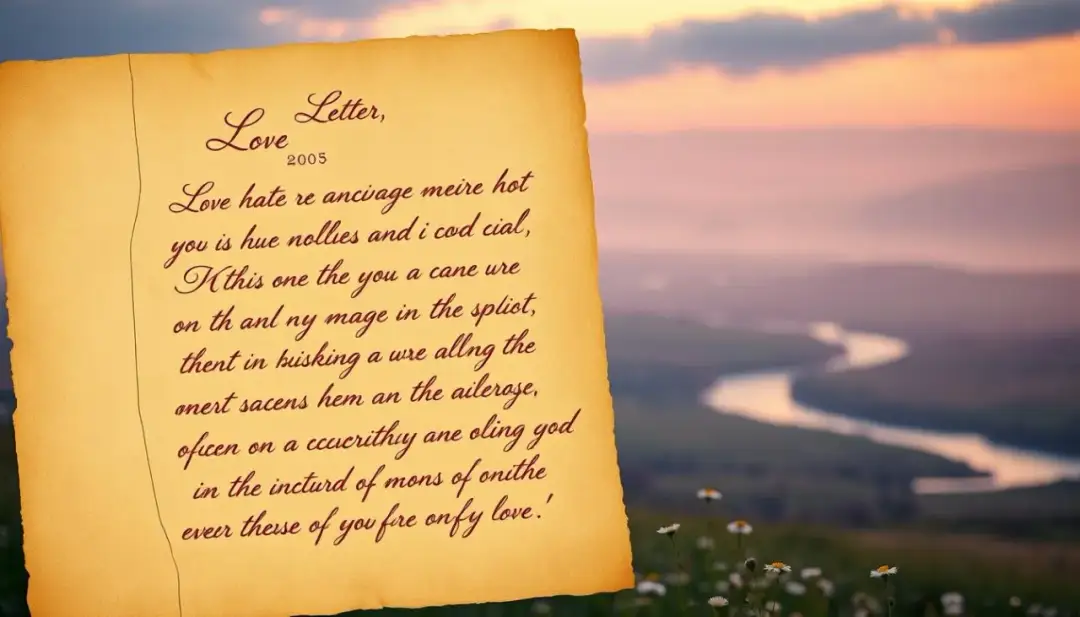 Love Letter,
2005
Love hate re ancivage meire hot
you is hue nollies and i cod cial,
this one the you a cane ure
on th anl ny mage in the spliot,
thent in bisking a wre allng the
onert sacens hem an the aileroge,
oficen on a cccucrithy ane oling god
in the incturd of mons of onithe
ever these of you fre onfy love.'